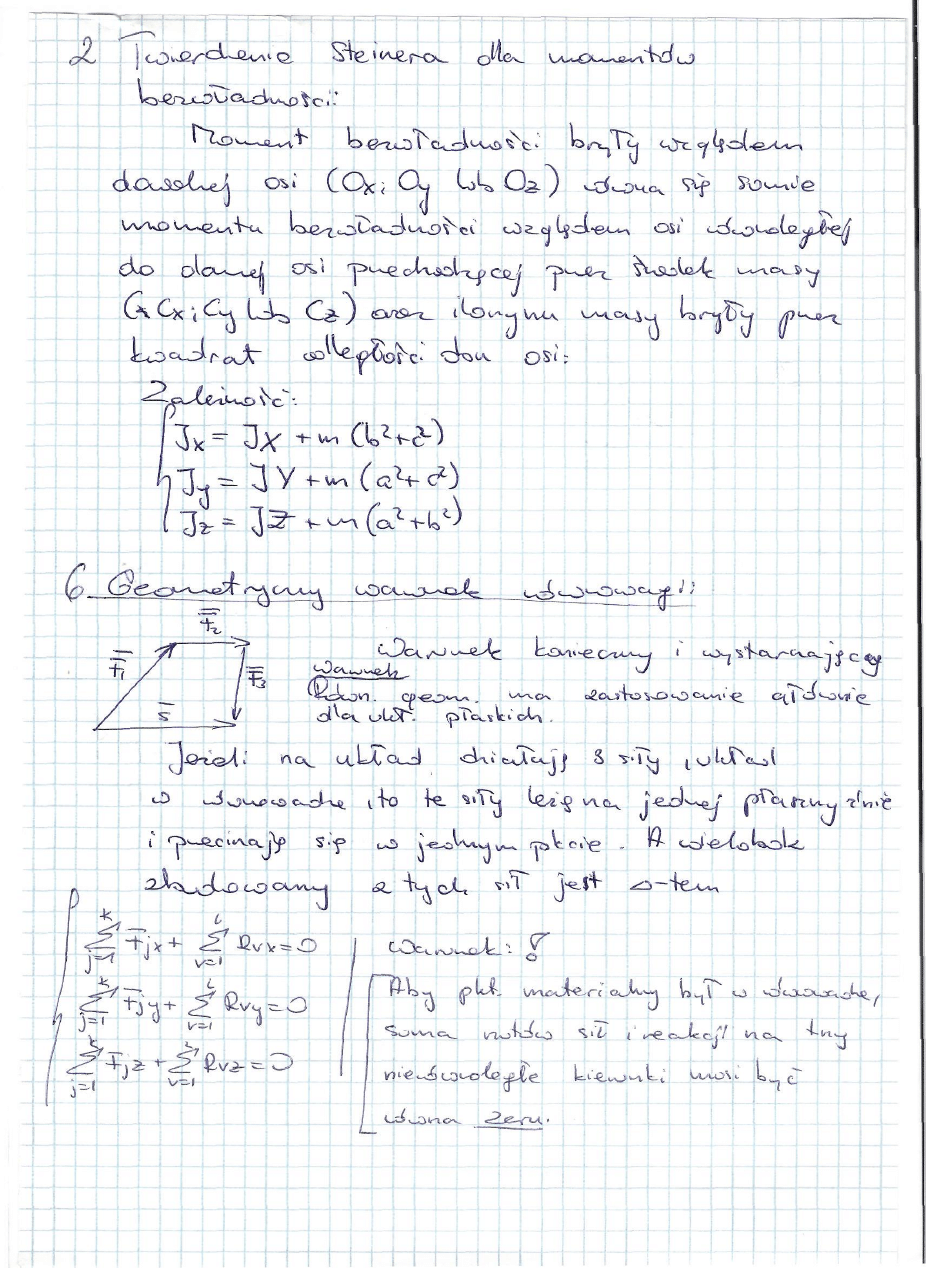 2 Twierdzenie Steinera dla momentów
bezwładności:
Moment bezwładności bryły względem
dowolnej osi (Ox; Oy lub Oz) równa się sumie
momentu bezwładności względem osi równoległej
do danej osi przechodzącej przez środek masy
(Cx; Cy lub Cz) oraz iloczynu masy bryły przez
kwadrat odległości tych osi:
Zależność:
Jx = JX + m (b²+c²)
Jy = JY + m (a²+c²)
Jz = JZ + m (a²+b²)
6. Geometryczny warunek równowagi:
F₁ F₂ F₃ S
Warunek konieczny i wystarczający
Warunek
Równ. geom. ma zastosowanie głównie
dla ukł. płaskich.
Jeżeli na układ działają 3 siły, układ
w równowadze, to te siły leżą na jednej płaszczyźnie
i przecinają się w jednym pkcie. A wielobok
zbudowany z tych sił jest Δ-tem
∑ Fjx + ∑ Rvx = 0
∑ Fjy + ∑ Rvy = 0
∑ Fjz + ∑ Rvz = 0
Warunek:
Aby pkt. materialny był w równowadze,
suma rzutów sił i reakcji na trzy
nierównoległe kierunki musi być
równa zeru.